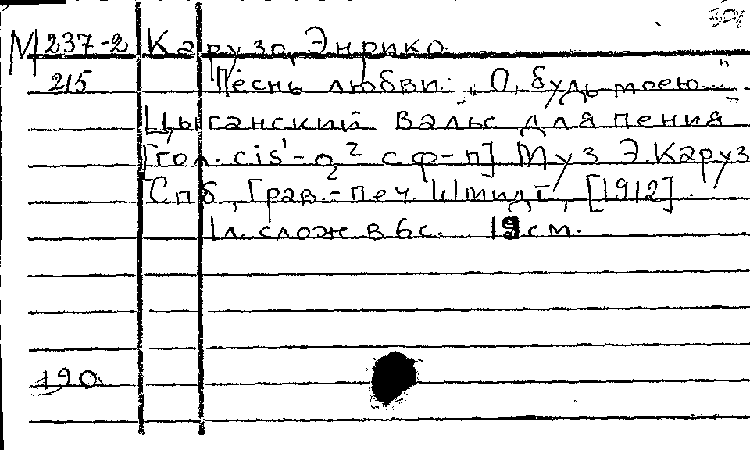 М 237-2 Карузо, Энрико.
215 Песнь любви: „О, будь моею".
Цыганский вальс для пения
[гол. cis¹-a² с ф-п] Муз Э. Каруз
Спб, Грав.-печ. Шмидт, [1912].
1 л. слож в 6 с. 19 см.
190